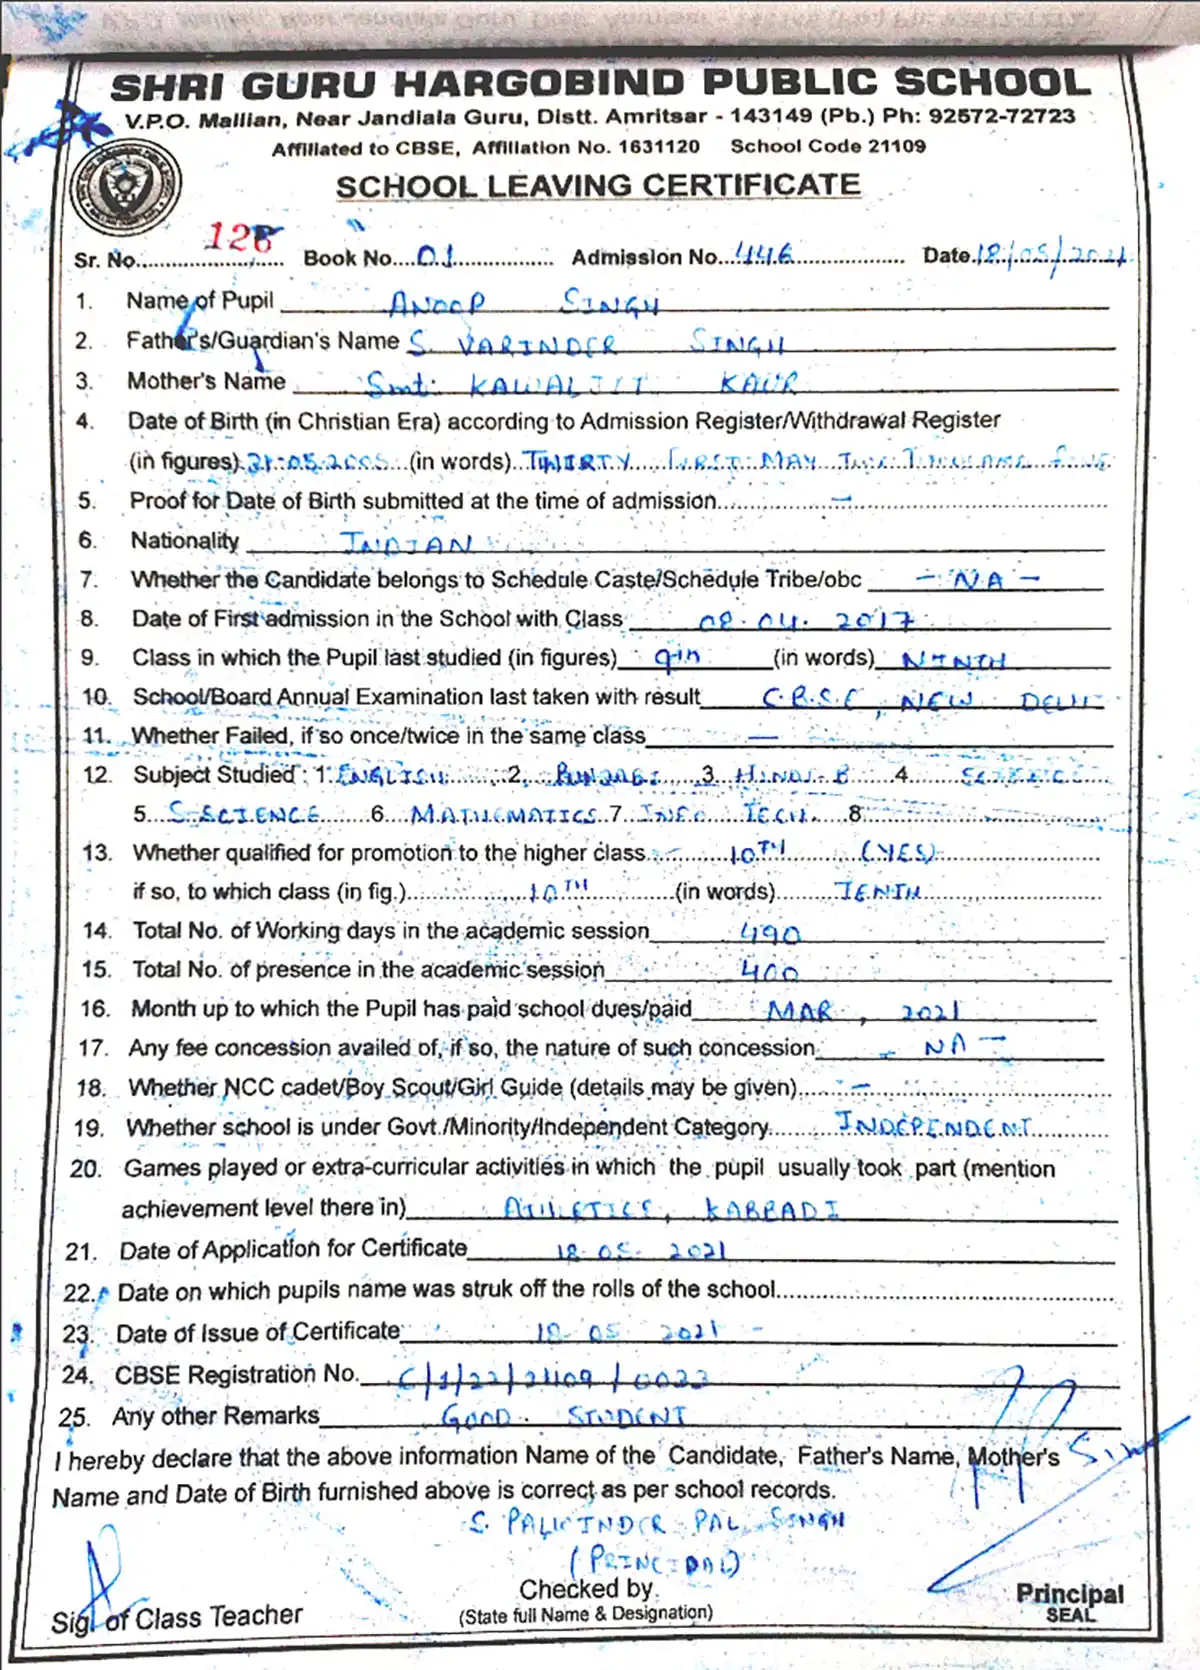 SHRI GURU HARGOBIND PUBLIC SCHOOL
V.P.O. Mallian, Near Jandiala Guru, Distt. Amritsar - 143149 (Pb.) Ph: 92572-72723
Affiliated to CBSE, Affiliation No. 1631120 School Code 21109
SCHOOL LEAVING CERTIFICATE
Sr. No. 126 Book No. 01 Admission No. 446 Date. 18/05/2021
1. Name of Pupil ANOOP SINGH
2. Father's/Guardian's Name S. VARINDER SINGH
3. Mother's Name Smt. KAWALJIT KAUR
4. Date of Birth (in Christian Era) according to Admission Register/Withdrawal Register
(in figures) 31.05.2005 (in words) THIRTY FIRST MAY TWO THOUSAND FIVE
5. Proof for Date of Birth submitted at the time of admission —
6. Nationality INDIAN
7. Whether the Candidate belongs to Schedule Caste/Schedule Tribe/obc - NA -
8. Date of First admission in the School with Class 08.04.2017
9. Class in which the Pupil last studied (in figures) 9th (in words) NINTH
10. School/Board Annual Examination last taken with result C.B.S.E, NEW DELHI
11. Whether Failed, if so once/twice in the same class —
12. Subject Studied : 1. ENGLISH 2. PUNJABI 3. HINDI-B 4. SCIENCE
5. S.SCIENCE 6. MATHEMATICS 7. INFO TECH. 8.
13. Whether qualified for promotion to the higher class 10TH (YES)
if so, to which class (in fig.) 10TH (in words) TENTH
14. Total No. of Working days in the academic session 490
15. Total No. of presence in the academic session 400
16. Month up to which the Pupil has paid school dues/paid MAR, 2021
17. Any fee concession availed of, if so, the nature of such concession - NA -
18. Whether NCC cadet/Boy Scout/Girl Guide (details may be given) —
19. Whether school is under Govt./Minority/Independent Category INDEPENDENT
20. Games played or extra-curricular activities in which the pupil usually took part (mention
achievement level there in) ATHLETICS, KABBADI
21. Date of Application for Certificate 18-05-2021
22. Date on which pupils name was struk off the rolls of the school
23. Date of Issue of Certificate 18-05 2021
24. CBSE Registration No. C/1/22/21109/0033
25. Any other Remarks GOOD STUDENT
I hereby declare that the above information Name of the Candidate, Father's Name, Mother's
Name and Date of Birth furnished above is correct as per school records.
S. PALWINDER PAL SINGH
(PRINCIPAL)
Checked by.
Sig. of Class Teacher (State full Name & Designation) Principal
SEAL